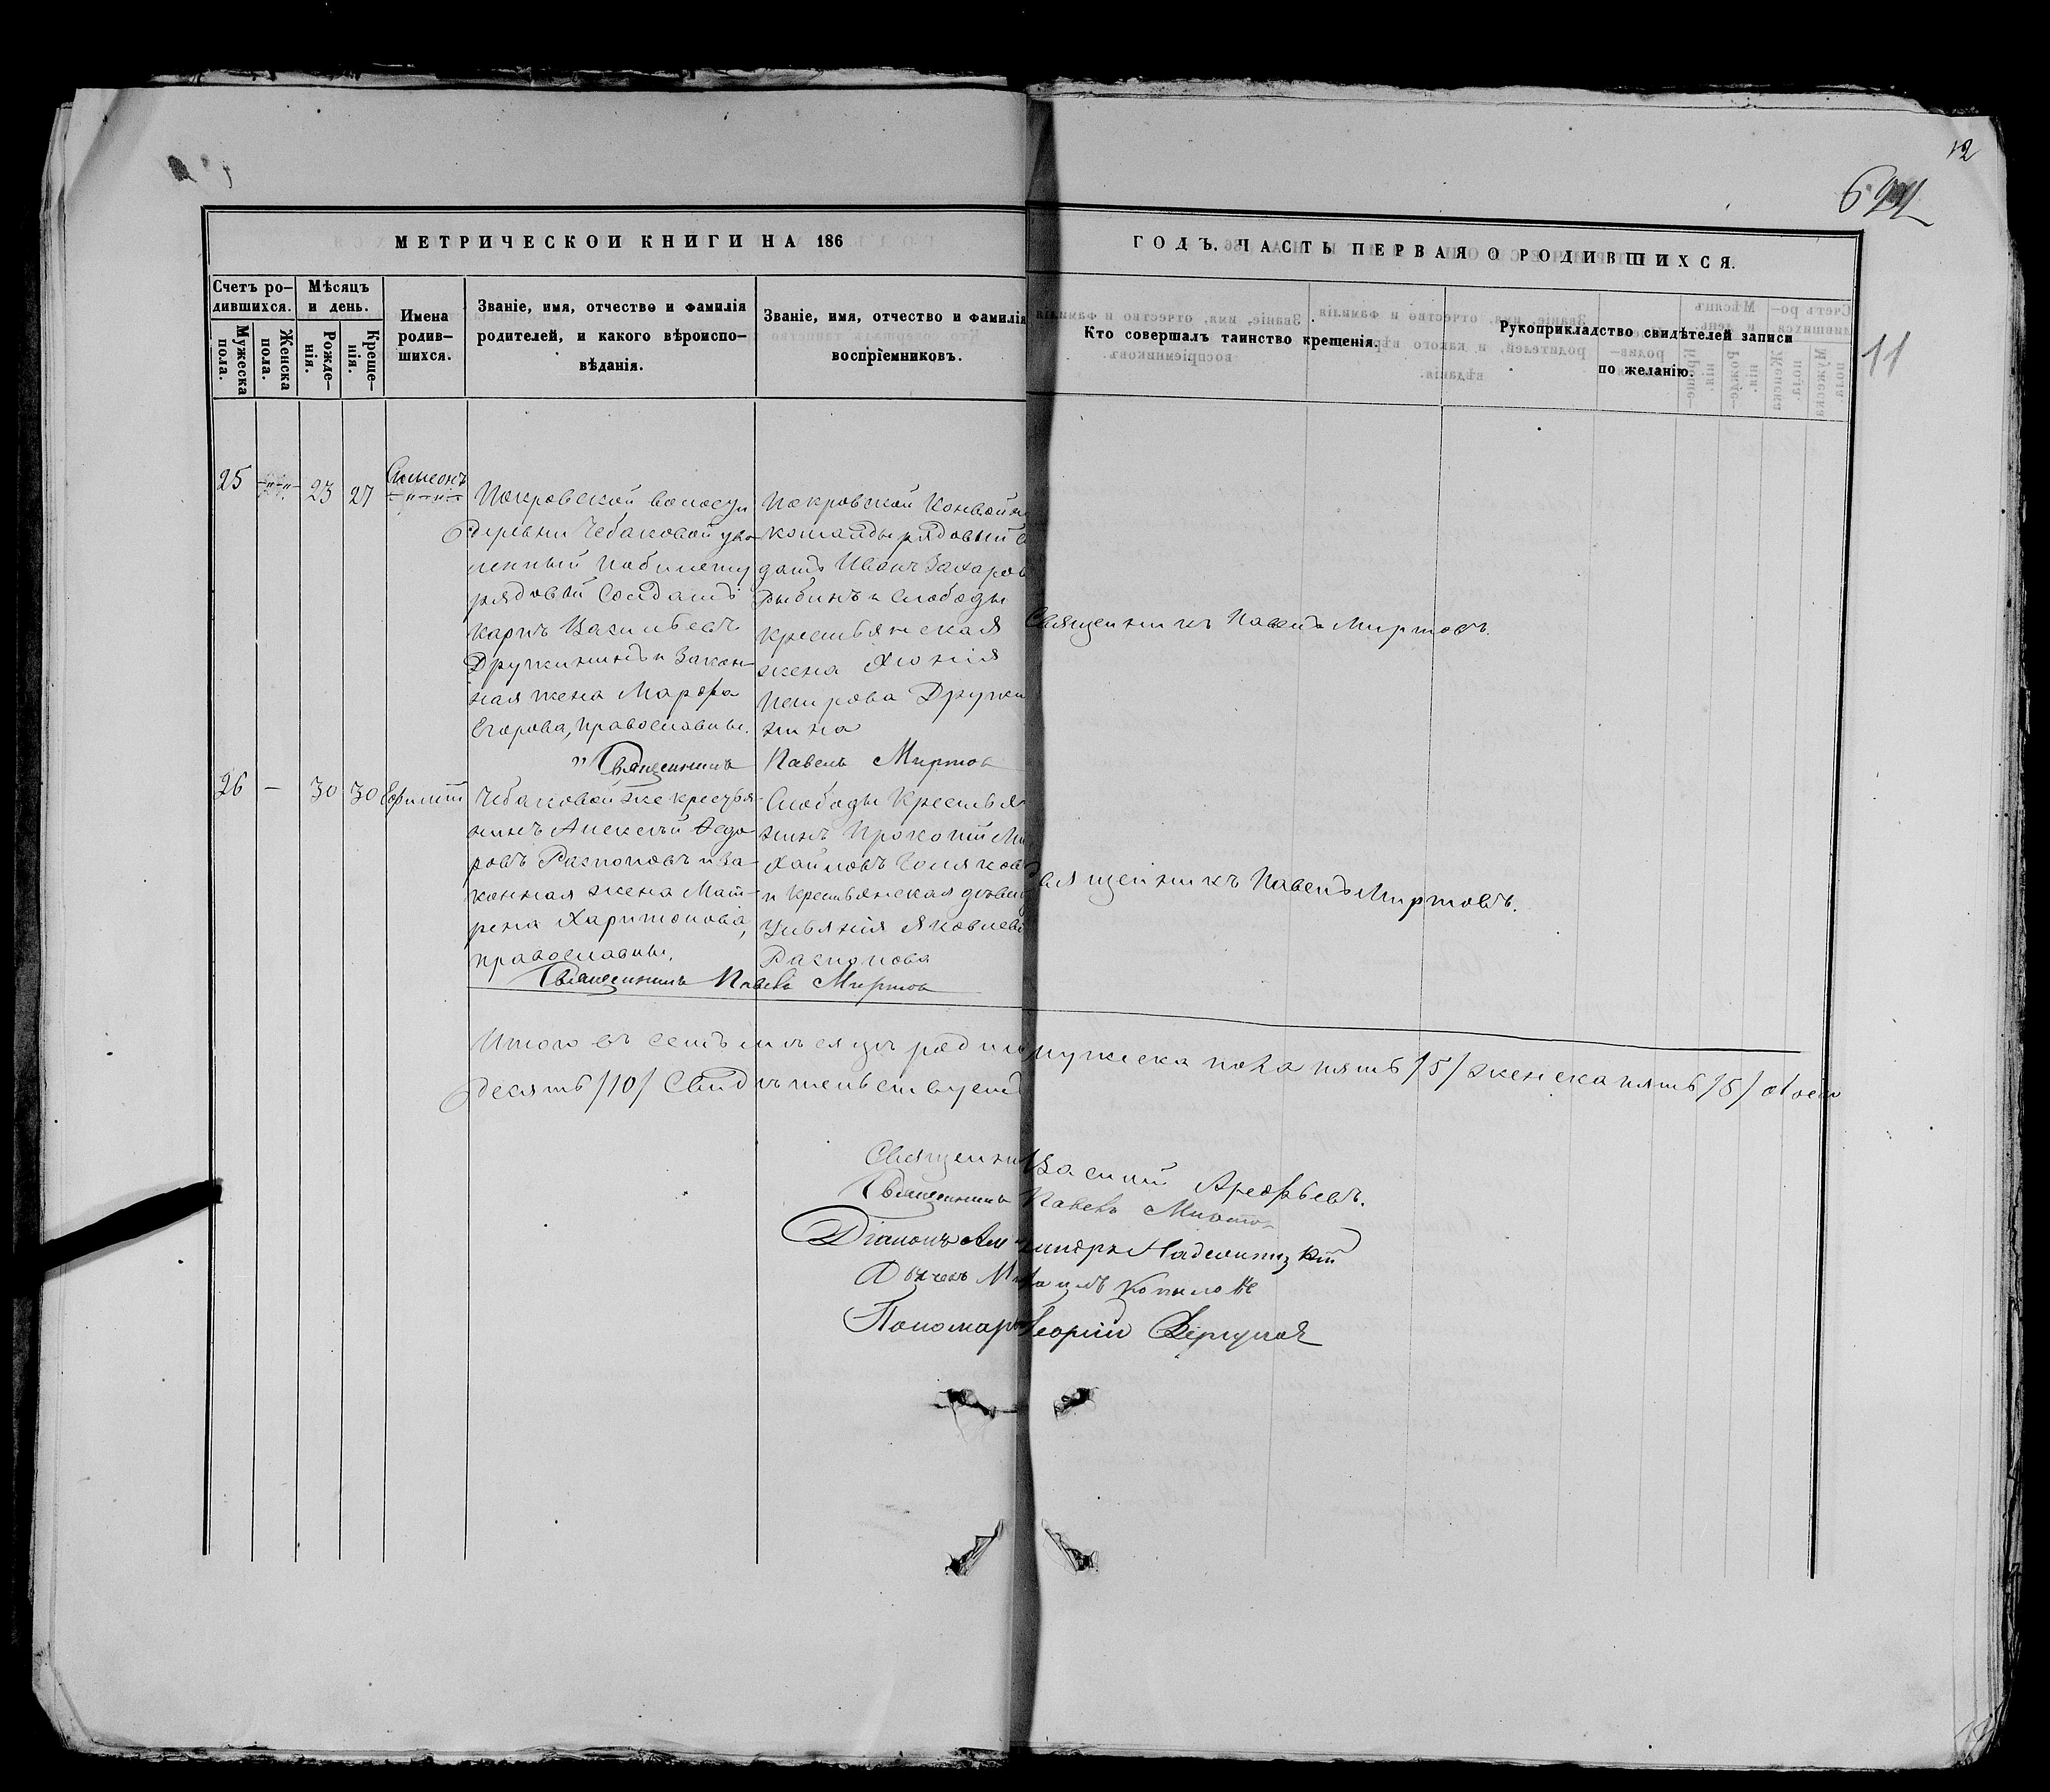 12
694
МЕТРИЧЕСКОЙ КНИГИ НА 186
ГОДЪ. ЧАСТЬ ПЕРВАЯ О РОДИВШИХСЯ.
11
Счетъ ро-
дившихся.
Мужеска
пола.
Женска
пола.
Мѣсяцъ
и день.
Рожде-
нія.
Креще-
нія.
Имена
родив-
шихся.
Званіе, имя, отчество и фамилія
родителей, и какого вѣроиспо-
вѣданія.
Званіе, имя, отчество и фамилія
воспріемниковъ.
Кто совершалъ таинство крещенія.
Рукоприкладство свидѣтелей записи
по желанію.
25 23 27 Симеонъ
Покровской волости
деревни Чебаковой уво
ленный по билету
рядовый Солдатъ
Карпъ Васильевъ
Дружининъ и Закон-
ная жена Марфа
Егорова, православные.
Покровской Конвойн
команды рядовый С
датъ Иванъ Захаров
Рыбинъ и Слободы
крестьянская
жена Хіонія
Петрова Дружи
нина
Священникъ Павелъ Миртовъ.
" Священникъ Павелъ Миртов
26 — 30 30 Ефимій
Чебаковой же крестья-
нинъ Алексѣй Ѳедо
ровъ Распоповъ и За-
конная жена Мат-
рена Харитонова,
православные.
Слободы Крестья
нинъ Прокопій Ми
хайловъ Голяков
и Крестьянская дѣвица
Ульянія Яковлева
Распопова
Священникъ Павелъ Миртовъ.
Священникъ Павелъ Миртов
Итого въ семъ мѣсяцѣ родил мужеска пола пять /5/ женска пять /5/ обоего
десять /10/ Свидѣтельствуемъ
Священни Василій Арефьевъ.
Священникъ Павелъ Миртов
Діаконъ Александръ
Дьячекъ Михаилъ Копыловъ
Пономарь Георгій